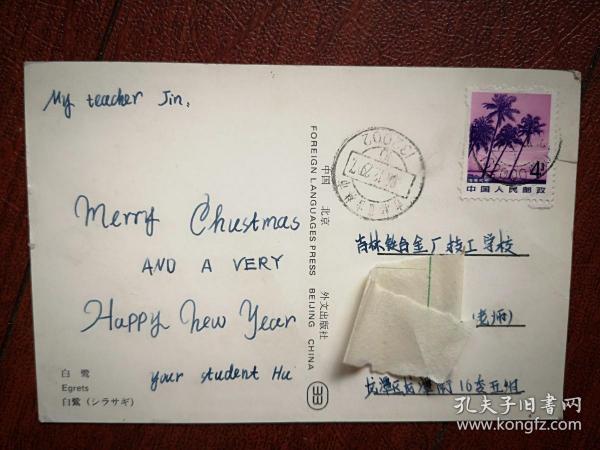 My teacher Jin,
Merry Chustmas
AND A VERY
Happy New Year
your student Hu
白鹭
Egrets
白鷺（シラサギ）
中国 北京 外文出版社
FOREIGN LANGUAGES PRESS BEIJING CHINA
4
中国人民邮政
132002
吉林铁合金厂技工学校
(老师)
龙潭区龙潭街16委五组
孔夫子旧书网
www.kongfz.com